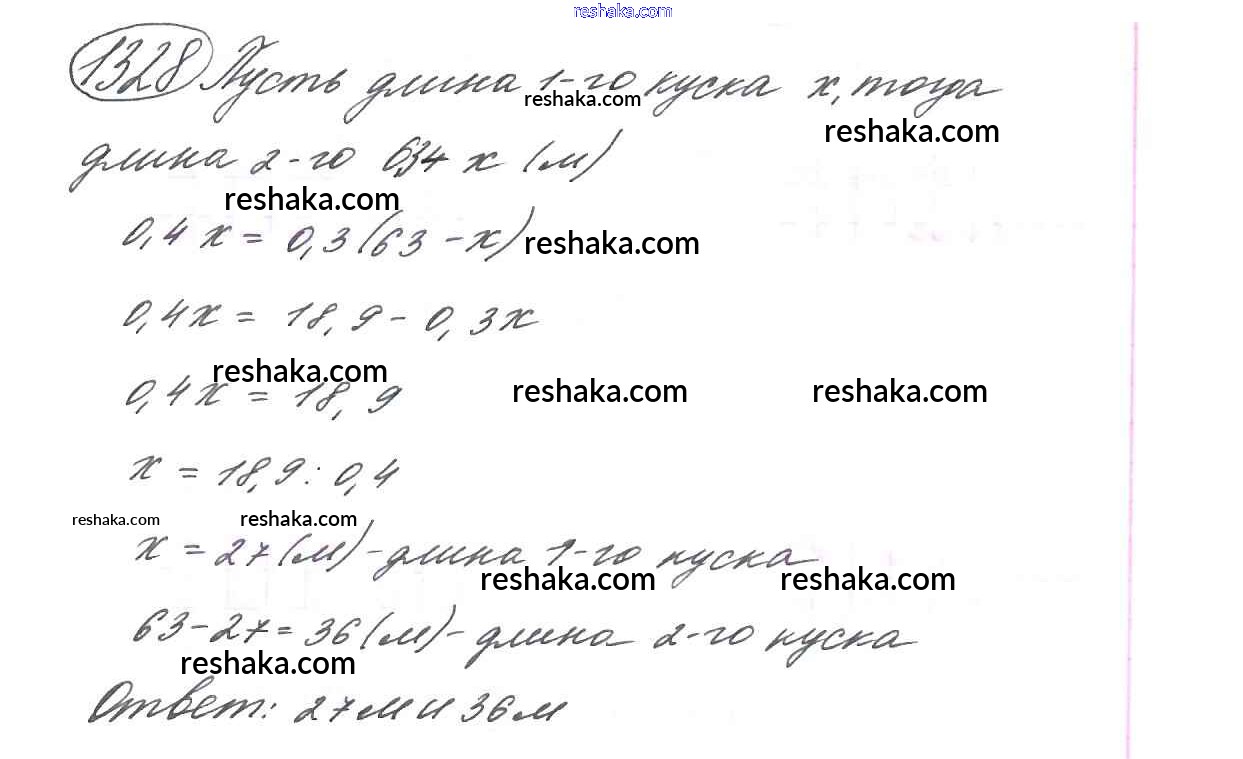 reshaka.com
1328 Пусть длина 1-го куска x, тогда
reshaka.com
reshaka.com
длина 2-го 634 x (м)
reshaka.com
0,4 x = 0,3(63 - x)
reshaka.com
0,4x = 18,9 - 0,3x
reshaka.com
0,4x = 18,9
reshaka.com reshaka.com
x = 18,9 : 0,4
reshaka.com reshaka.com
x = 27 (м) - длина 1-го куска
reshaka.com reshaka.com
63 - 27 = 36 (м) - длина 2-го куска
reshaka.com
Ответ: 27 м и 36 м